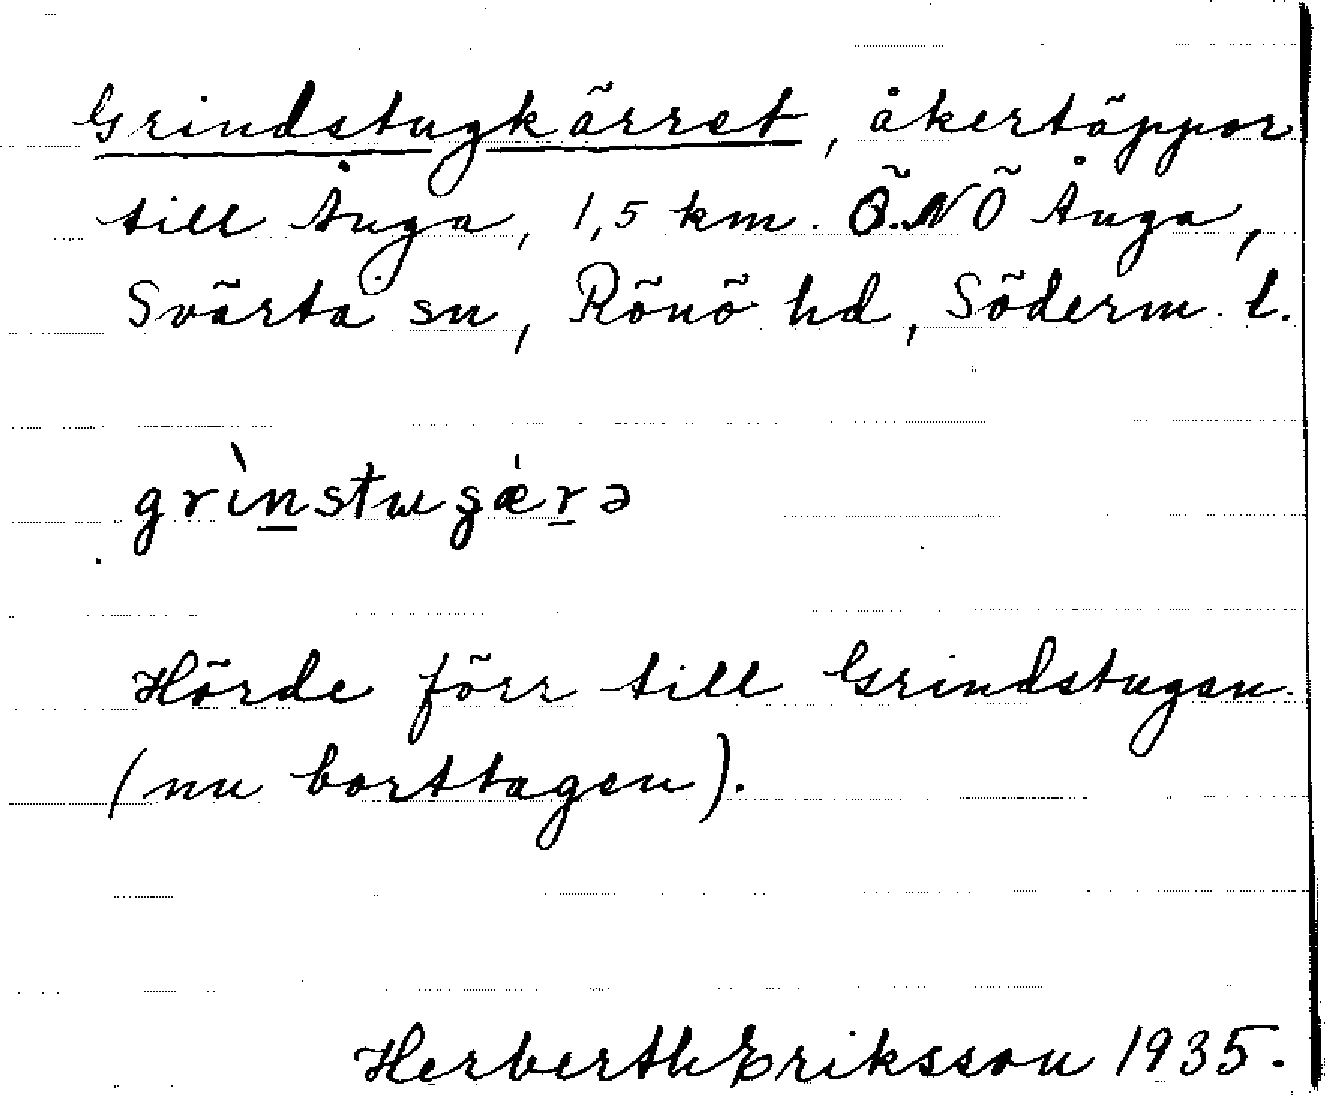 Grindstugkärret, åkertäppor
till Ånga, 1,5 km. Ö.NÖ Ånga,
Svärta sn, Rönö hd, Söderm. l.
grìnstuɡǽrə
Hörde förr till Grindstugan
(nu borttagen).
Herberth Eriksson 1935.